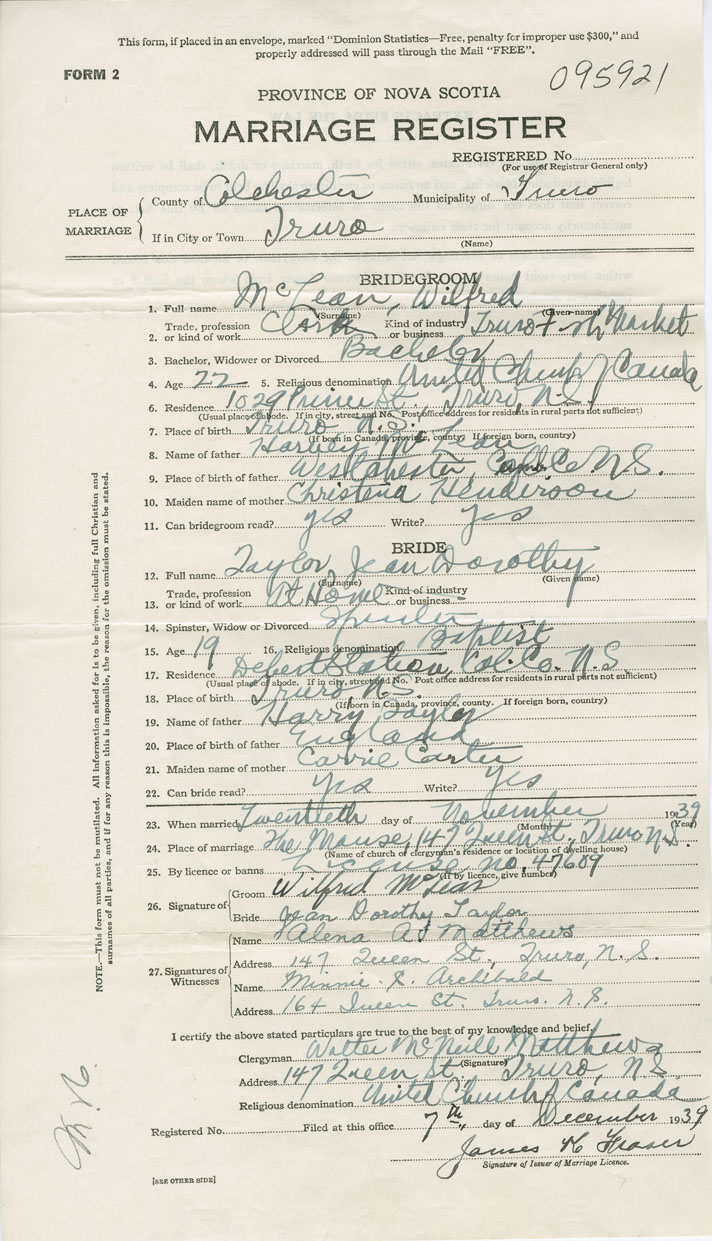 This form, if placed in an envelope, marked "Dominion Statistics—Free, penalty for improper use $300," and
properly addressed will pass through the Mail "FREE".
FORM 2
095921
PROVINCE OF NOVA SCOTIA
MARRIAGE REGISTER
REGISTERED No.
(For use of Registrar General only)
PLACE OF MARRIAGE
County of Colchester Municipality of Truro
If in City or Town Truro
(Name)
BRIDEGROOM
1. Full name McLean, Wilfred
(Surname) (Given name)
2. Trade, profession or kind of work Clerk Kind of industry or business Truro Fish Market
3. Bachelor, Widower or Divorced Bachelor
4. Age 22 5. Religious denomination United Church of Canada
6. Residence 1029 Prince St., Truro, N.S.
(Usual place of abode. If in city, street and No. Post office address for residents in rural parts not sufficient)
7. Place of birth Truro N.S.
(If born in Canada, province, county. If foreign born, country)
8. Name of father Harvey McLean
9. Place of birth of father Westchester, Co. N.S.
10. Maiden name of mother Christena Henderson
11. Can bridegroom read? yes Write? yes
BRIDE
12. Full name Taylor, Jean Dorothy
(Surname) (Given name)
13. Trade, profession or kind of work At Home Kind of industry or business
14. Spinster, Widow or Divorced Spinster
15. Age 19 16. Religious denomination Baptist
17. Residence Debert Station, Col. Co. N.S.
(Usual place of abode. If in city, street and No. Post office address for residents in rural parts not sufficient)
18. Place of birth Truro, N.S.
(If born in Canada, province, county. If foreign born, country)
19. Name of father Harry Taylor
20. Place of birth of father England
21. Maiden name of mother Carrie Carter
22. Can bride read? Yes Write? Yes
23. When married Twentieth day of November 1939
(Month) (Year)
24. Place of marriage The Manse, 147 Queen St., Truro N.S.
(Name of church or clergyman's residence or location of dwelling house)
25. By licence or banns License no. 47609
(If by licence, give number)
26. Signature of
Groom Wilfred McLean
Bride Jean Dorothy Taylor
27. Signatures of Witnesses
Name Alena A. Matthews
Address 147 Queen St., Truro, N.S.
Name Minnie Archibald
Address 164 Queen St. Truro. N.S.
I certify the above stated particulars are true to the best of my knowledge and belief.
Clergyman Walter McNeill Matthews
(Signature)
Address 147 Queen St. Truro, N.S.
Religious denomination United Church of Canada
Registered No. Filed at this office 7th, day of December 1939
James K Fraser
Signature of Issuer of Marriage Licence.
[SEE OTHER SIDE]
NOTE.—This form must not be mutilated. All information asked for is to be given, including full Christian and
surnames of all parties, and if for any reason this is impossible, the reason for the omission must be stated.